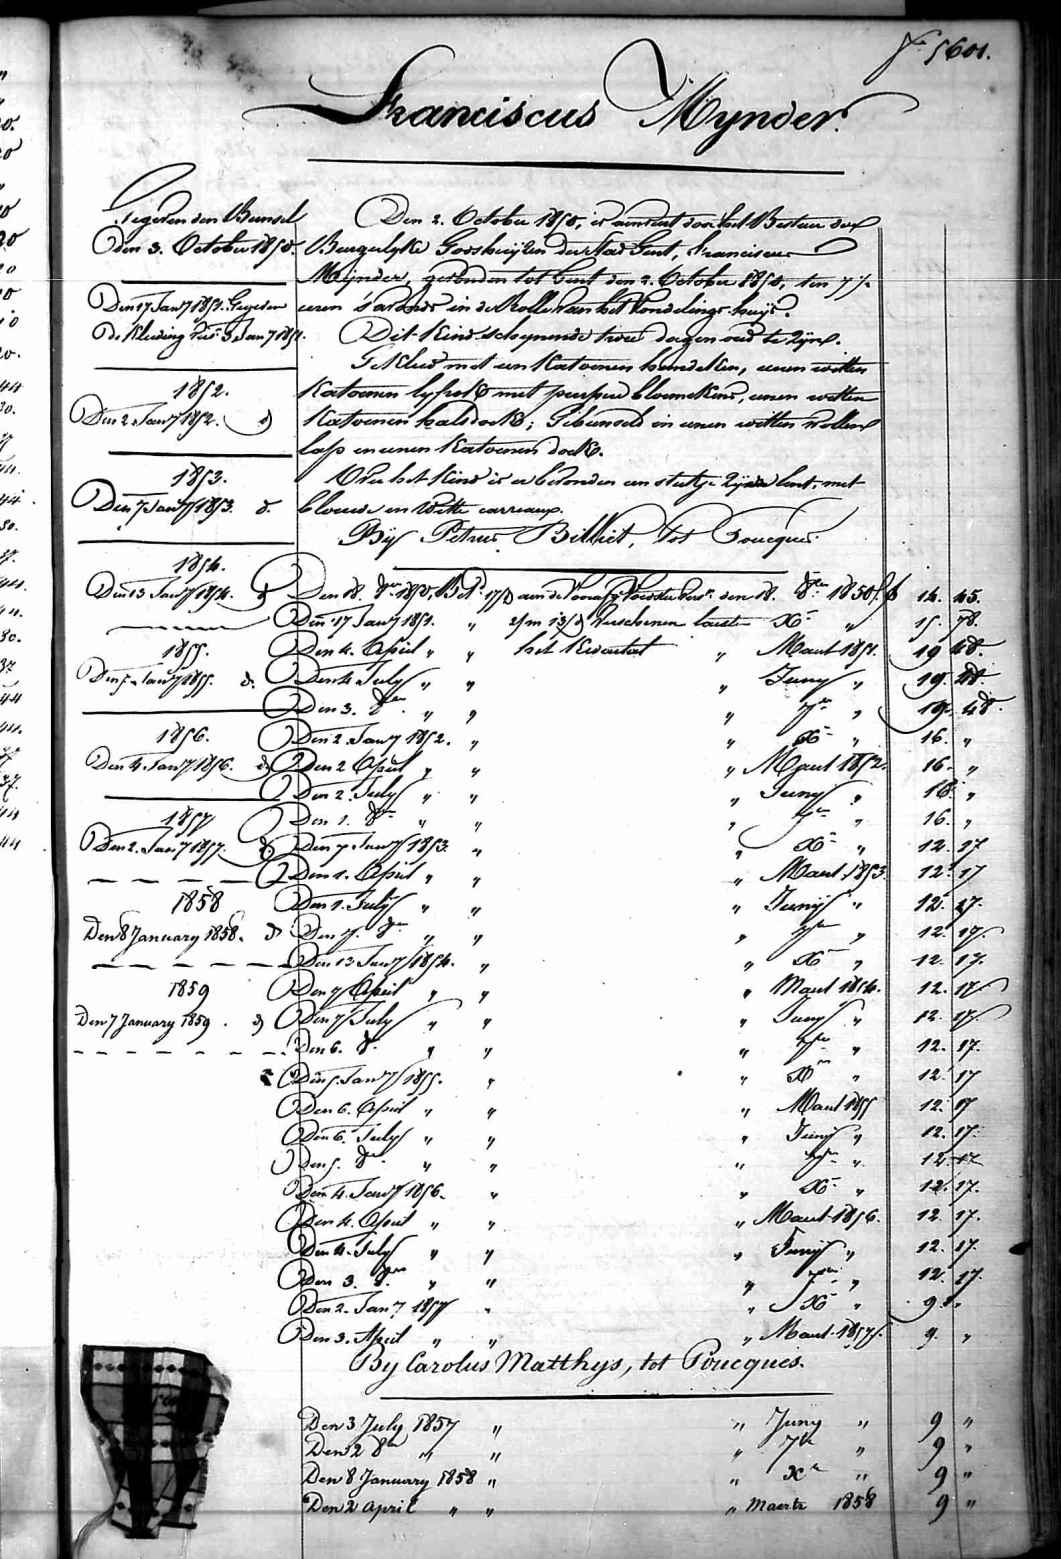 N.° 5601.
Franciscus Mynder.
Gegeven den Bunsel
Den 3. October 1850.
Den 17 Jan^y 1851. Gegeven
de Kleeding 3 Jan^y 1851.
1852.
Den 2 Jan^y 1852. d
1853.
Den 7 Jan^y 1853. d.
1854.
Den 13 Jan^y 1854. d
1855.
Den 5 Jan^y 1855. d.
1856.
Den 4. Jan^y 1856. d
1857
Den 2. Jan^y 1857. d
1858
Den 8 January 1858. d
1859
Den 7 January 1859. d
Den 2. October 1850, is aenveerd door het Bestuer der
Burgerlyke Godshuijzen der stad Gent, Franciscus
Mijnder, gevonden tot Gent den 2. October 1850, ten 7 ½
uren s'avonds in de Rolle van het Vondelings-huijs.
Dit Kind schynende twee dagen oud te zyn.
Gekleed met een Katoenen hemdeken, eenen witten
Katoenen lyfrok met purpere bloemekens, eenen witten
Katoenen halsdoek; Gebunseld in eenen witten wollen
lap en eenen Katoenen doek.
Over het Kind is er bevonden een stukje zyde lint, met
blauwe en witte carreaux.
Bÿ Petrus Billiet, tot Poucques.
Den 18. 8^er 1850, Bet^d 17/D aen de Voedster den 18. 8^er 1850. f 14. 45.
Den 17 Jan^y 1851. " 2/m 13/d Verschenen laesten X^r " 15. 78.
Den 4. April " " het Kwartael " Maert 1851. 19 48.
Den 4 July " " " Juny " 19. 48.
Den 3. 8^er " " " 7^er " 19. 48.
Den 2. Jan^y 1852. " " X^r " 16. "
Den 2 April " " " Maert 1852. 16. "
Den 2. July " " " Juny " 16. "
Den 1. 8^er " " " 7^er " 16. "
Den 7 Jan^y 1853. " " X^r " 12. 17
Den 1. April " " " Maert 1853. 12. 17
Den 1. July " " " Junij " 12. 17.
Den 7. 8^er " " " 7^er " 12. 17.
Den 13 Jan^y 1854. " " X^r " 12. 17.
Den 7 April " " " Maert 1854. 12. 17
Den 7 July " " " Juny " 12. 17.
Den 6. 8^r " " " 7^er " 12. 17.
Den 5. Jan^y 1855. " " X^r " 12. 17
Den 6. April " " " Maert 1855 12. 17
Den 6. July " " " Junij " 12. 17.
Den 5. 8^er " " " 7^er " 12. 17
Den 4. Jan^y 1856. " " X^r " 12. 17.
Den 4. April " " " Maert 1856. 12. 17.
Den 4. July " " " Junij " 12. 17.
Den 3. 8^er " " " 7^er " 12. 17.
Den 2. Jan^y 1857 " " X^r " 9. "
Den 3. April " " " Maert 1857. 9. "
By Carolus Matthys, tot Poucques.
Den 3 July 1857 " " Juny " 9 "
Den 2 8^er " " " 7^r " 9 "
Den 8 January 1858 " " X^r " 9 "
Den 2 April " " " Maerte 1858 9 "